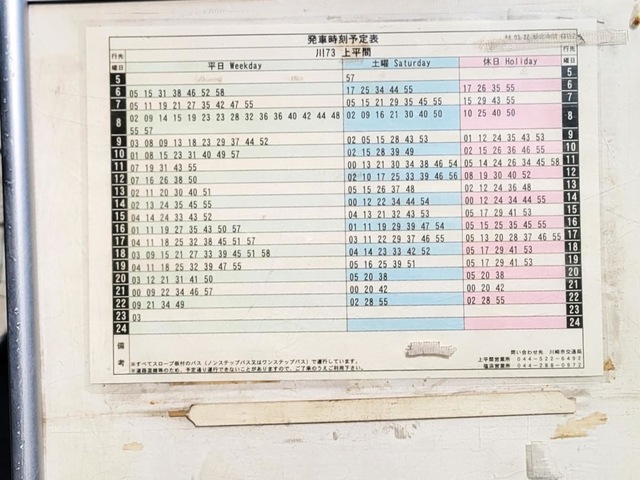 発車時刻予定表
川73 上平間
行先 曜日 平日 Weekday 土曜 Saturday 休日 Holiday 行先 曜日
5 57 5
6 05 15 31 38 46 52 58 17 25 34 44 55 17 26 35 55 6
7 05 11 19 21 27 35 42 47 55 05 15 21 29 35 45 55 15 29 43 55 7
8 02 09 14 15 19 23 23 28 32 36 36 40 42 44 48 02 09 16 21 30 40 50 10 25 40 50 8
55 57
9 03 08 09 13 18 23 29 37 44 52 02 05 15 28 43 53 01 12 24 35 43 53 9
10 01 08 15 23 31 40 49 57 02 15 28 39 49 02 15 26 36 46 55 10
11 07 19 31 43 55 00 13 21 30 34 38 46 54 05 14 24 26 34 45 58 11
12 07 16 26 38 50 02 10 17 25 33 39 46 56 08 19 30 40 52 12
13 02 11 20 30 40 51 05 15 26 37 48 02 12 24 36 48 13
14 02 13 24 35 45 55 00 12 22 34 44 54 00 12 24 34 44 55 14
15 04 14 24 33 43 52 04 13 21 32 43 53 05 17 29 41 53 15
16 01 11 19 27 35 43 50 57 01 11 19 29 39 47 54 05 15 25 35 45 55 16
17 04 11 18 25 32 38 45 51 57 03 11 22 29 37 46 55 05 13 20 28 37 46 55 17
18 03 09 15 21 27 33 39 45 51 58 04 14 23 33 42 52 05 17 29 41 53 18
19 04 11 18 25 32 39 47 55 05 16 25 39 51 05 17 29 41 53 19
20 03 12 21 31 41 50 05 20 38 05 20 38 20
21 00 09 22 34 46 57 00 20 42 00 20 42 21
22 09 21 34 49 02 28 55 02 28 55 22
23 03 23
24 24
備考
※すべてスロープ板付のバス(ノンステップバス又はワンステップバス)で運行しています。
※道路混雑等のため、予定通り運行できないことがありますので、ご了承のうえご利用下さい。
問い合わせ先 川崎市交通局
上平間営業所 044-522-6492
塩浜営業所 044-288-0972